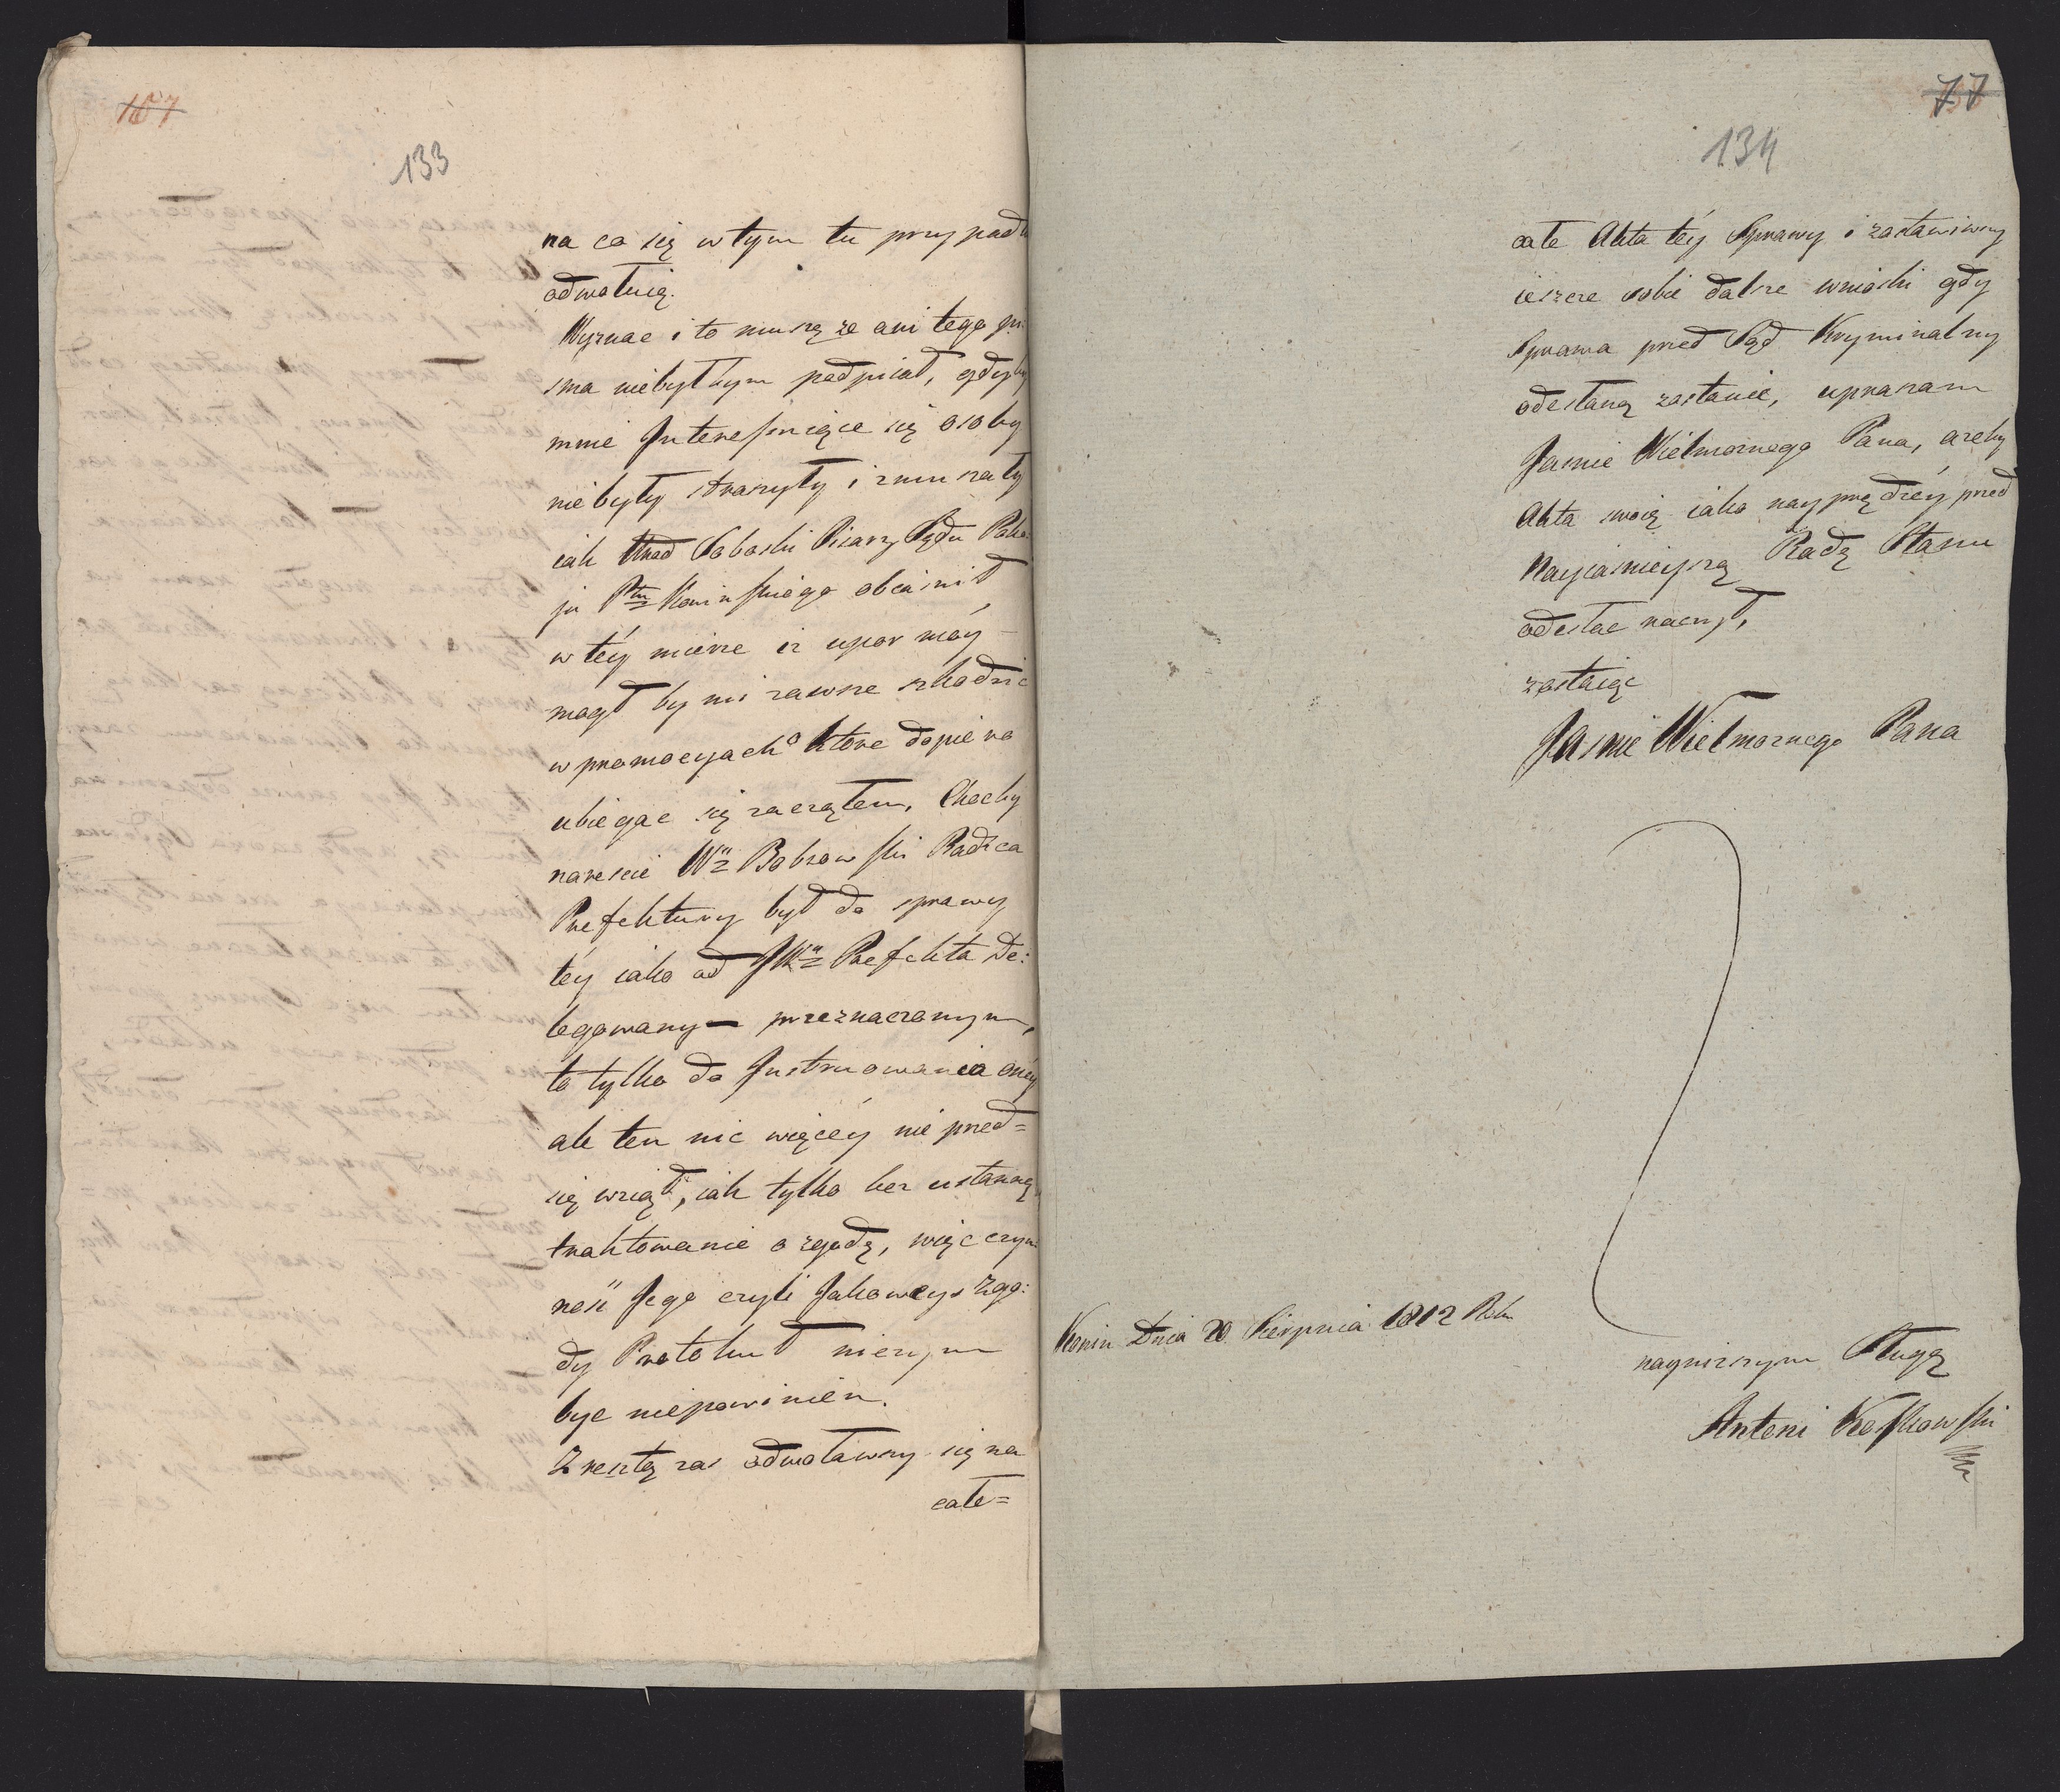 167
133
na co się w tym tu przypadku
odwołuię.
Wyznac i to muszę ze ani tego pi:
sma niebyłbym podpisał, gdyby
mnie Interessuięce się osoby
niebyły straszyły i zmuszały
iak Soboski Pisarz Sądu Poko:
ju Ptu Konińskiego obiaśnił
w téy mierze iz upor moy
mogł by mi zawsze szkodzić
w promocyjach o ktore dopiero
ubiegac się zacząłem. Chocby
nareście Wny Bobrowski Radca
Prefektury był do sprawy
téy iako od JWn Prefekta De:
legowany — przeznaczonym,
to tylko do Instruowania onéy
ale ten nic więcéy nie przed=
się wziął, iak tylko bez ustanną
traktowanie o zgodę, więc czyn:
ność Jego czyli Jakoweys Zgo:
dy Protokuł niczym
byc niepowinien.
Zresztą zas odwoławszy się na
całe=
77
134
całe Akta téy Sprawy i zostawiwszy
ieszcze sobie dalsze wnioski gdy
Sprawa przed Sąd Kryminalny
odesłaną zostanie, upraszam
Jasnie Wielmoznego Pana, azeby
Akta swoię iako nayprędzéy przed
Nayiasnieyszą Radę Stanu
odesłac raczył,
zostaięc
Jasnie Wielmoznego Pana
Konin Dnia 20 Sierpnia 1812 Roku
naynizszym Sługą
Antoni Koszkowski